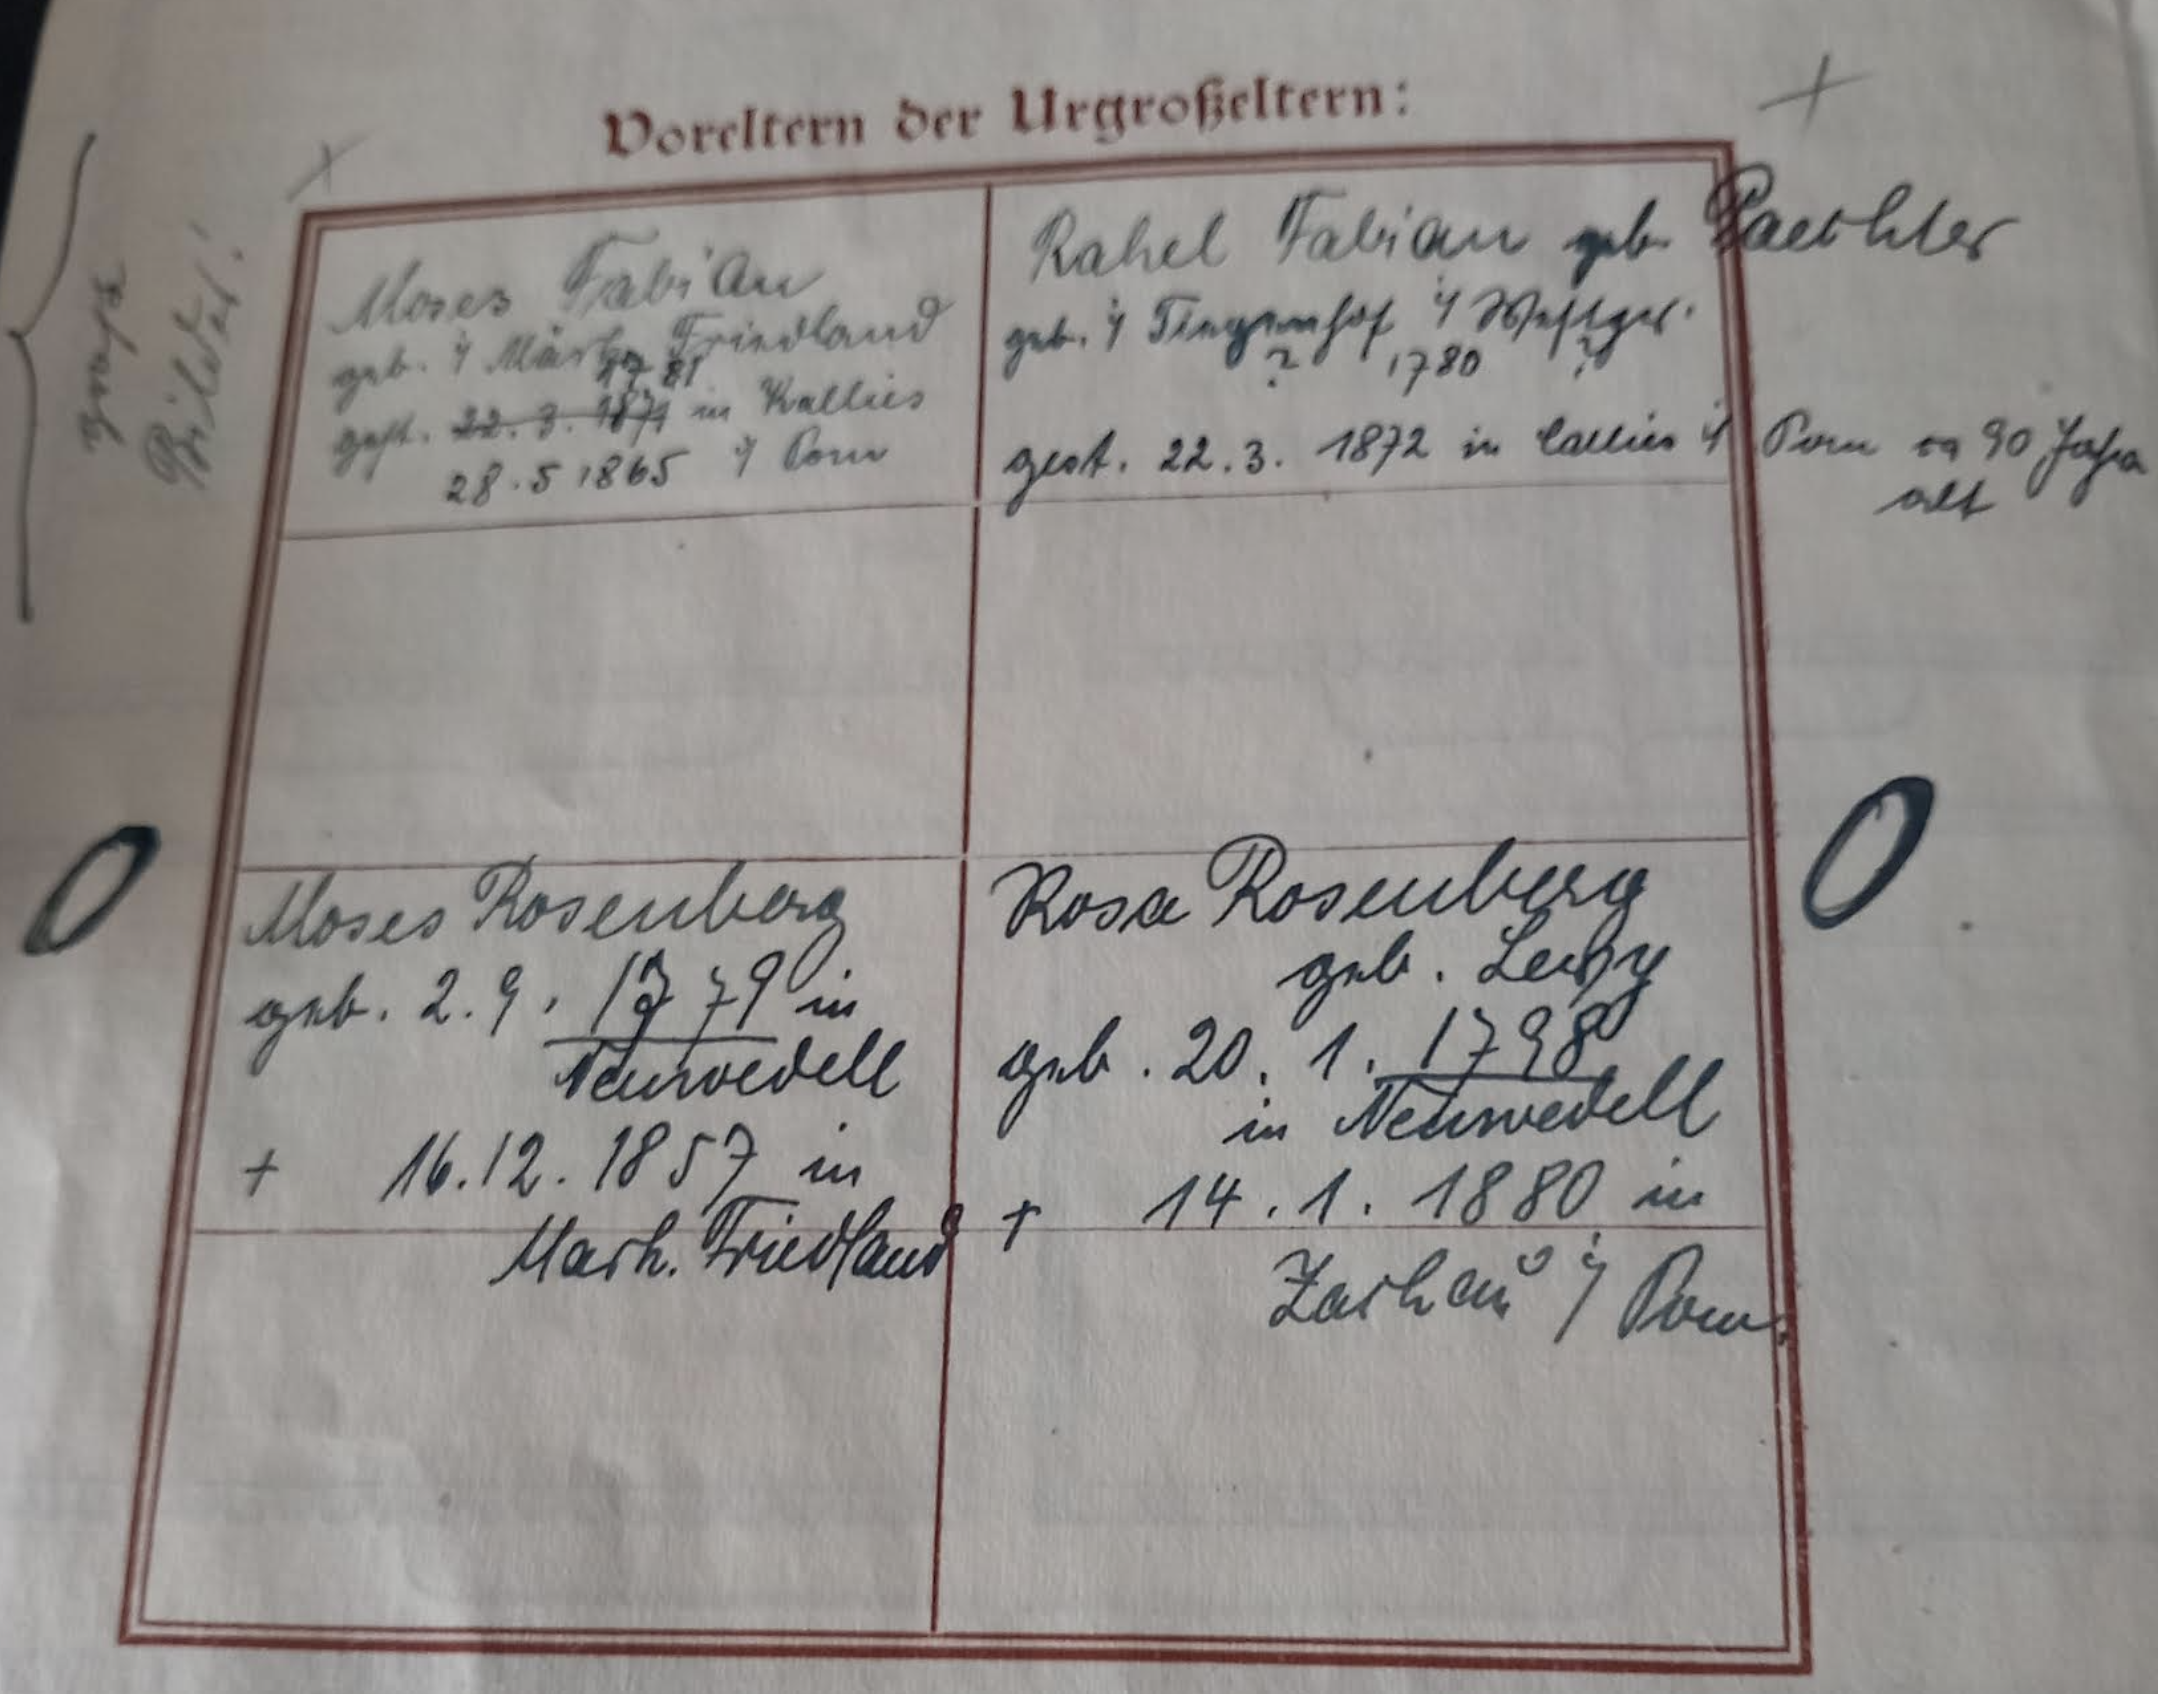 Voreltern der Urgroßeltern:
große
Bilder!
Moses Fabian
geb. i/ Märk. Friedland
1781
gest. 22. 3. 1871 in Kallies
28. 5 1865 i/ Pom
Rahel Fabian geb. Paechter
geb. i/ Tiegenhof i/ Westpr.
? 1780 ?
gest. 22. 3. 1872 in Callies i/ Pom ca 90 Jahre
alt
Moses Rosenberg
geb. 2. 9. 1779 in
Neuwedell
+ 16. 12. 1857 in
Märk. Friedland
Rosa Rosenberg
geb. Levy
geb. 20. 1. 1798
in Neuwedell
+ 14. 1. 1880 in
i/ Pom.